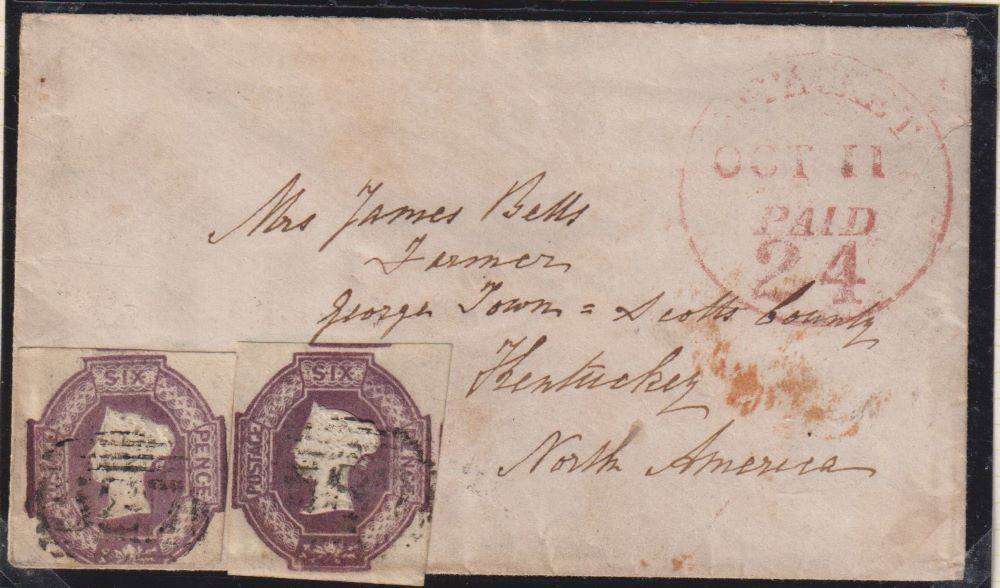 PACKET
OCT 11
PAID
24
Mrs James Bells
Farmer
George Town = Scotts County
Kentuckey
North America
SIX
PENCE
POSTAGE
SIX
POSTAGE